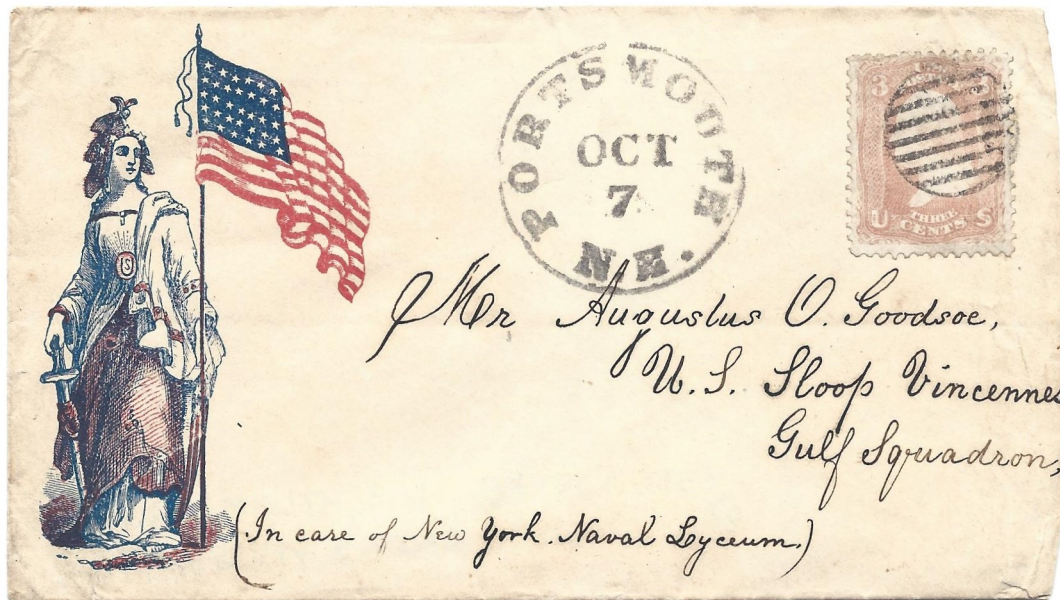 PORTSMOUTH
OCT
7
N.H.
3
U THREE CENTS S
Mr Augustus O. Goodsoe,
U.S. Sloop Vincennes
Gulf Squadron,
(In care of New York. Naval Lyceum.)